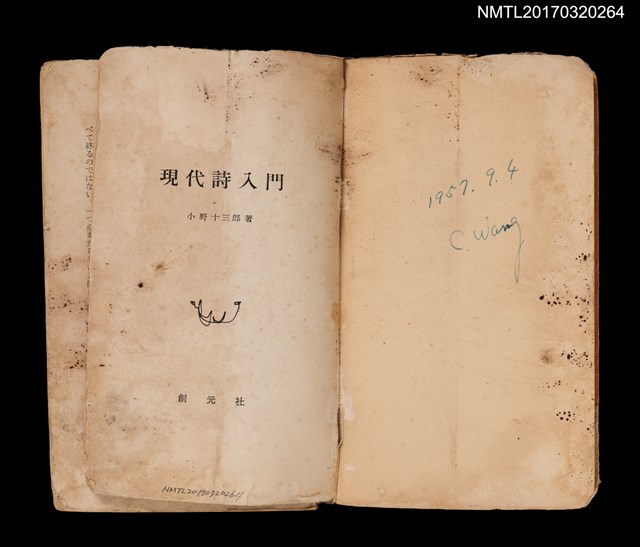 NMTL20170320264
現代詩入門
小野十三郎著
創元社
NMTL20170320264
1957. 9. 4
C. Wang
べて終るのではない、一つ